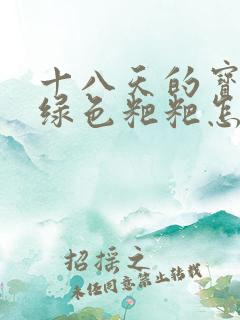 十八天的宝
绿色粑粑怎
招摇之
未经同意禁止转载